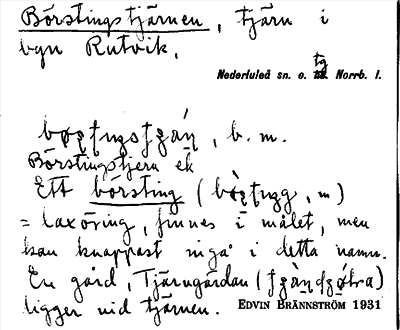 Börstingstjärnen, tjärn i
byn Rutvik.
tg
Nederluleå sn. o. Norrb. l.
b. m.
Börstingstjern ek
Ett börsting (
, m)
= laxöring, finnes i målet, men
kan knappast ingå i detta namn.
En gård, Tjärngårdan (
ligger vid tjärnen. EDVIN BRÄNNSTRÖM 1931